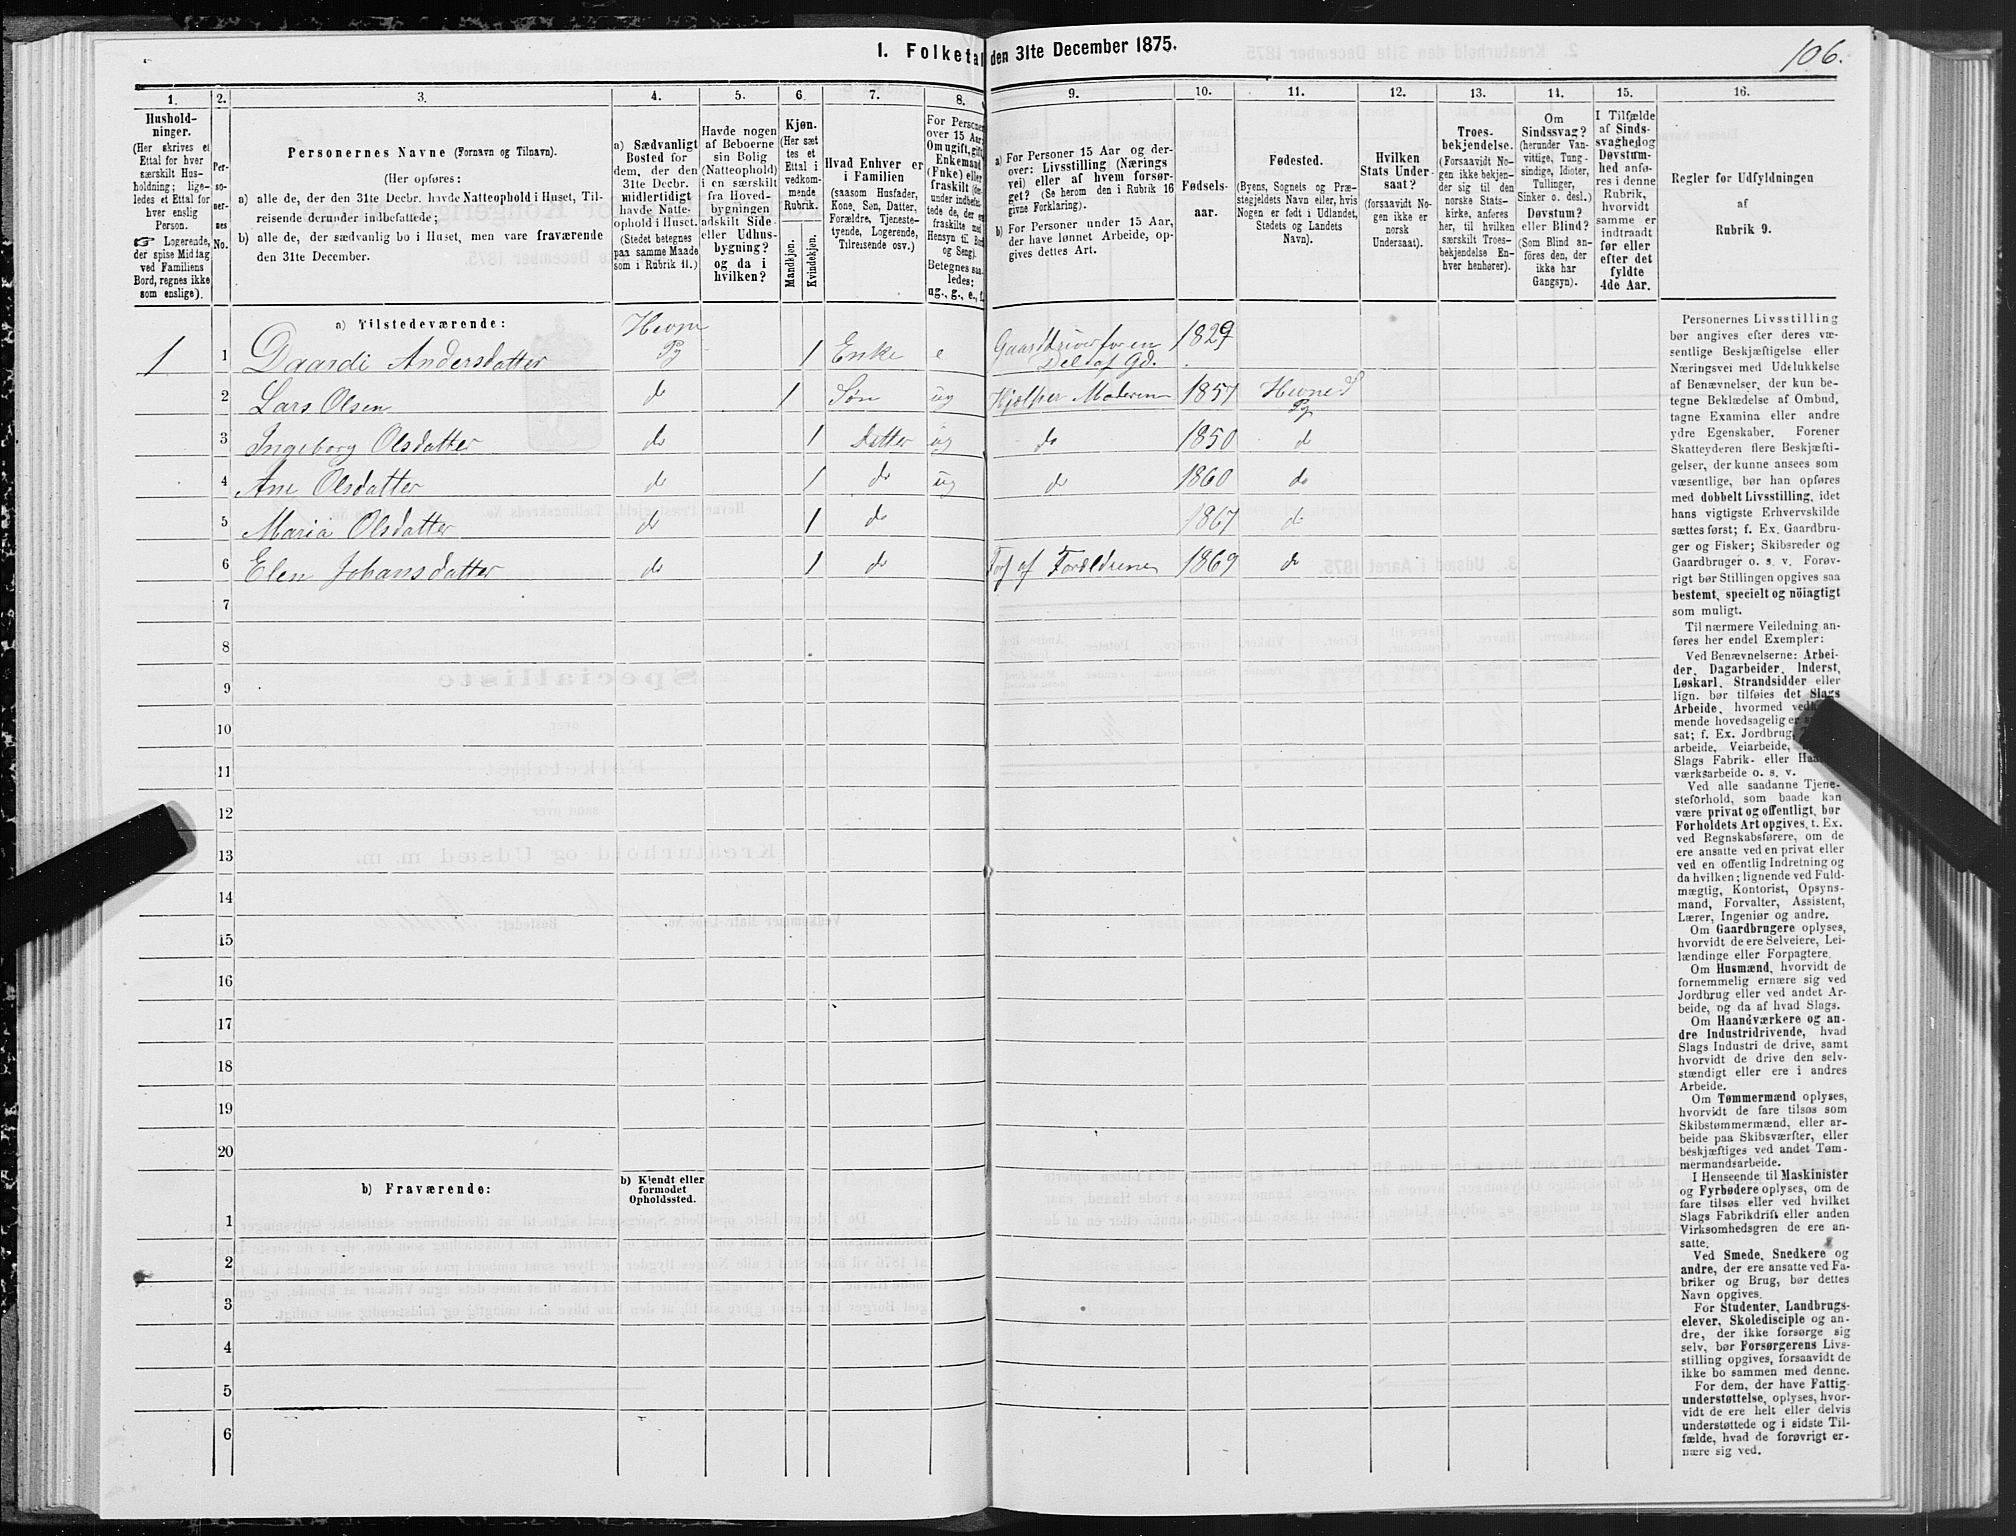 1. Folketal den 31te December 1875.
106.
1.
2.
3.
4.
5.
6.
7.
8.
9.
10.
11.
12.
13.
14.
15.
16.
Hushold-
ninger.
(Her skrives et
Ettal for hver
særskilt Hus-
holdning; lige-
ledes et Ettal for
hver enslig
Person.
☞ Logerende,
der spise Middag
ved Familiens
Bord, regnes ikke
som enslige).
Per-
so-
ner-
nes
No.
Personernes Navne (Fornavn og Tilnavn).
(Her opføres:
a) alle de, der den 31te Decbr. havde Natteophold i Huset, Til-
reisende derunder indbefattede;
b) alle de, der sædvanlig bo i Huset, men vare fraværende
den 31te December.
a) Sædvanligt
Bosted for
dem, der den
31te Decbr.
midlertidigt
havde Natte-
ophold i Huset.
(Stedet betegnes
paa samme Maade
som i Rubrik 11.)
Havde nogen
af Beboerne
sin Bolig
(Natteophold)
i en særskilt
fra Hoved-
bygningen
adskilt Side-
eller Udhus-
bygning?
og da i
hvilken?
Kjøn.
(Her sæt
tes et
Ettal i
vedkom-
mende
Rubrik.
Mandkjøn.
Kvindekjøn.
Hvad Enhver er
i Familien
(saasom Husfader,
Kone, Søn, Datter,
Forældre, Tjeneste-
tyende, Logerende,
Tilreisende osv.)
For Personer
over 15 Aar:
Om ugift, gift,
Enkemand
(Enke) eller
fraskilt
Hensyn til Bord
og Seng).
Betegnes saa-
ledes:
ug., g., e., f.
a) For Personer 15 Aar og der-
over: Livsstilling (Nærings
vei) eller af hvem forsør-
get? (Se herom den i Rubrik 16
givne Forklaring).
b) For Personer under 15 Aar,
der have lønnet Arbeide, op-
gives dettes Art.
Fødsels-
aar.
Fødested.
(Byens, Sognets og Præ-
stegjeldets Navn eller, hvis
Nogen er født i Udlandet,
Stedets og Landets
Navn).
Hvilken
Stats Under-
saat?
(forsaavidt No-
gen ikke er
norsk
Undersaat).
Troes-
bekjendelse.
(Forsaavidt No-
gen ikke bekjen-
der sig til den
norske Stats-
kirke, anføres
her, til hvilken
særskilt Troes-
bekjendelse En-
hver henhører).
Om
Sindssvag?
(herunder Van-
vittige, Tung-
sindige, Idioter,
Tullinger,
Sinker o. desl.)
Døvstum?
eller Blind?
(Som Blind an-
føres den, der
ikke har
Gangsyn).
I Tilfælde
af Sinds-
svaghed og
Døvstum-
hed anfø-
res i denne
Rubrik,
hvorvidt
samme er
indtraadt
før eller
efter det
fyldte
4de Aar.
Regler for Udfyldningen
af
Rubrik 9.
a) Tilstedeværende:
1 1 Daardi Andersdatter Hevne Pg 1 Enke e Gaarddriver for en Del af Gd. 1829
2 Lars Olsen do 1 Søn ug Hjælper Moderen 1857 Hevne Pg
3 Ingeborg Olsdatter do 1 Datter ug do 1850 do
4 Ane Olsdatter do 1 do ug do 1860 do
5 Maria Olsdatter do 1 do 1867 do
6 Elen Johansdatter do 1 do Fors af Forældrene 1869 do
7
8
9
10
11
12
13
14
15
16
17
18
19
20
b) Fraværende:
b) Kjendt eller
formodet
Opholdssted.
1
2
3
4
5
6
Personernes Livsstilling
bør angives efter deres væ-
sentlige Beskjæftigelse eller
Næringsvei med Udelukkelse
af Benævnelser, der kun be-
tegne Beklædelse af Ombud,
tagne Examina eller andre
ydre Egenskaber. Forener
Skatteyderen flere Beskjæfti-
gelser, der kunne ansees som
væsentlige, bør han opføres
med dobbelt Livsstilling, idet
hans vigtigste Erhvervskilde
sættes først; f. Ex. Gaardbru-
ger og Fisker; Skibsreder og
Gaardbruger o. s. v. Forøv-
rigt bør Stillingen opgives saa
bestemt, specielt og nöiagtigt
som muligt.
Til nærmere Veiledning an-
føres her endel Exempler:
Ved Benævnelserne: Arbei-
der, Dagarbeider, Inderst,
Løskarl, Strandsidder eller
lign. bør tilføies det Slags
Arbeide, hvormed
mende hovedsagelig er
sat; f. Ex. Jordbrug,
arbeide, Veiarbeide,
Slags Fabrik- eller
værksarbeide o. s. v.
Ved alle saadanne Tjene-
steforhold, som baade kan
være privat og offentligt, bør
Forholdets Art opgives, t. Ex.
ved Regnskabsførere, om de
ere ansatte ved en privat eller
ved en offentlig Indretning og
da hvilken; lignende ved Fuld-
mægtig, Kontorist, Opsyns-
mand, Forvalter, Assistent,
Lærer, Ingeniør og andre.
Om Gaardbrugere oplyses,
hvorvidt de ere Selveiere, Lei-
lændinge eller Forpagtere.
Om Husmænd, hvorvidt de
fornemmelig ernære sig ved
Jordbrug eller ved andet Ar-
beide, og da af hvad Slags.
Om Haandværkere og an-
dre Industridrivende, hvad
Slags Industri de drive, samt
hvorvidt de drive den selv-
stændigt eller ere i andres
Arbeide.
Om Tømmermænd oplyses,
hvorvidt de fare tilsøs som
Skibstømmermænd, eller ar-
beide paa Skibsværfter, eller
beskjæftiges ved andet Tøm-
mermandsarbeide.
I Henseende til Maskinister
og Fyrbødere oplyses, om de
fare tilsøs eller ved hvilket
Slags Fabrikdrift eller anden
Virksomhedsgren de ere an-
satte.
Ved Smede, Snedkere og
andre, der ere ansatte ved Fa-
briker og Brug, bør dettes
Navn opgives.
For Studenter, Landbrugs-
elever, Skoledisciple og an-
dre, der ikke forsørge sig
selv, bør Forsørgerens Livs-
stilling opgives, forsaavidt de
ikke bo sammen med denne.
For dem, der have Fattig-
understøttelse, oplyses, hvor-
vidt de ere helt eller delvis
understøttede og i sidste Til-
fælde, hvad de forøvrigt er-
nære sig ved.